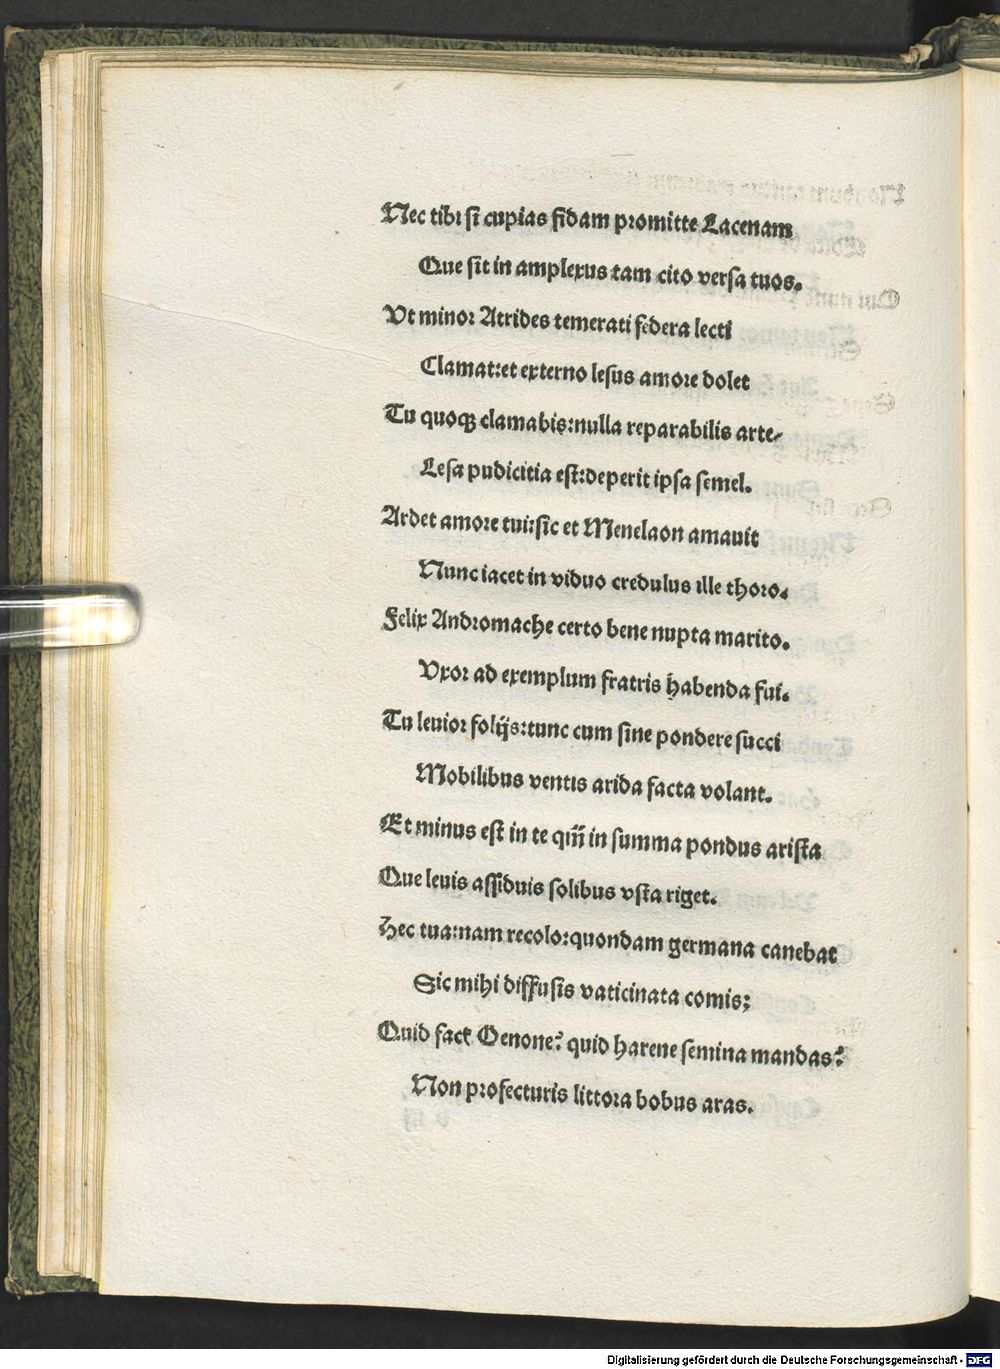 Nec tibi si cupias fidam promitte Lacenam
Que sit in amplexus tam cito versa tuos.
Vt minor Atrides temerati federa lecti
Clamat:et externo lesus amore dolet
Tu quoqꝫ clamabis:nulla reparabilis arte.
Lesa pudicitia est:deperit ipsa semel.
Ardet amore tui:sic et Menelaon amauit
Nunc iacet in viduo credulus ille thoro.
Felix Andromache certo bene nupta marito.
Vxor ad exemplum fratris habenda fui.
Tu leuior folijs:tunc cum sine pondere succi
Mobilibus ventis arida facta volant.
Et minus est in te qm̄ in summa pondus arista
Que leuis assiduis solibus vsta riget.
Hec tua:nam recolo:quondam germana canebat
Sic mihi diffusis vaticinata comis:
Quid facꝭ Oenone? quid harene semina mandas?
Non profecturis littora bobus aras.
Digitalisierung gefördert durch die Deutsche Forschungsgemeinschaft - DFG